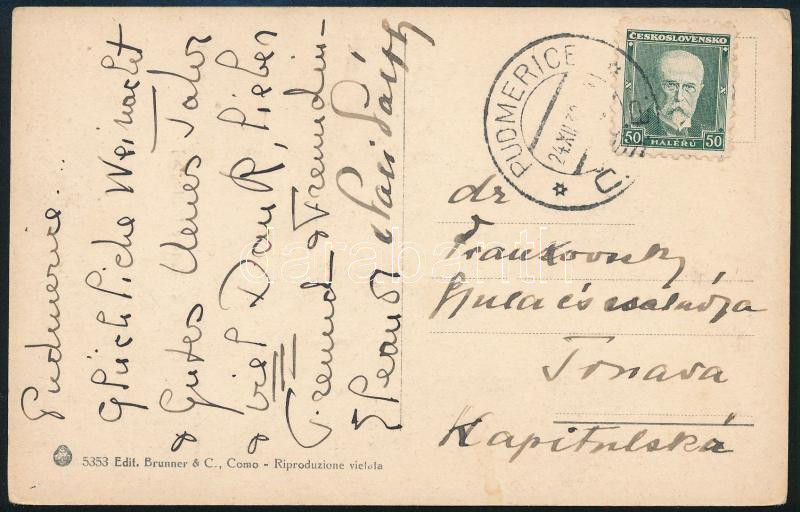 Pudmerice...
Glückliche Weinacht
& Gutes Neues Jahr
& viel Dank, lieber
Freund & Freundin
ČESKOSLOVENSKO
50 HALÉŘŮ 50
PUDMERICE
24.XII.
dr
Frankovszky
Gyula és családja
Trnava
Kapitulská
5353 Edit. Brunner & C., Como - Riproduzione vietata
darabanth